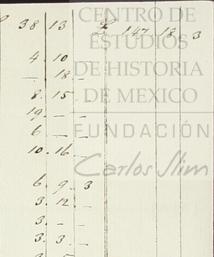 38 13 £ 147 18 3
4 10 -
- 18 -
8 15 -
19 - -
6 - -
10 16 -
6 9 3
3 12 -
3 - -
3 3 -
CENTRO DE
ESTUDIOS
DE HISTORIA
DE MEXICO
FUNDACIÓN
Carlos Slim